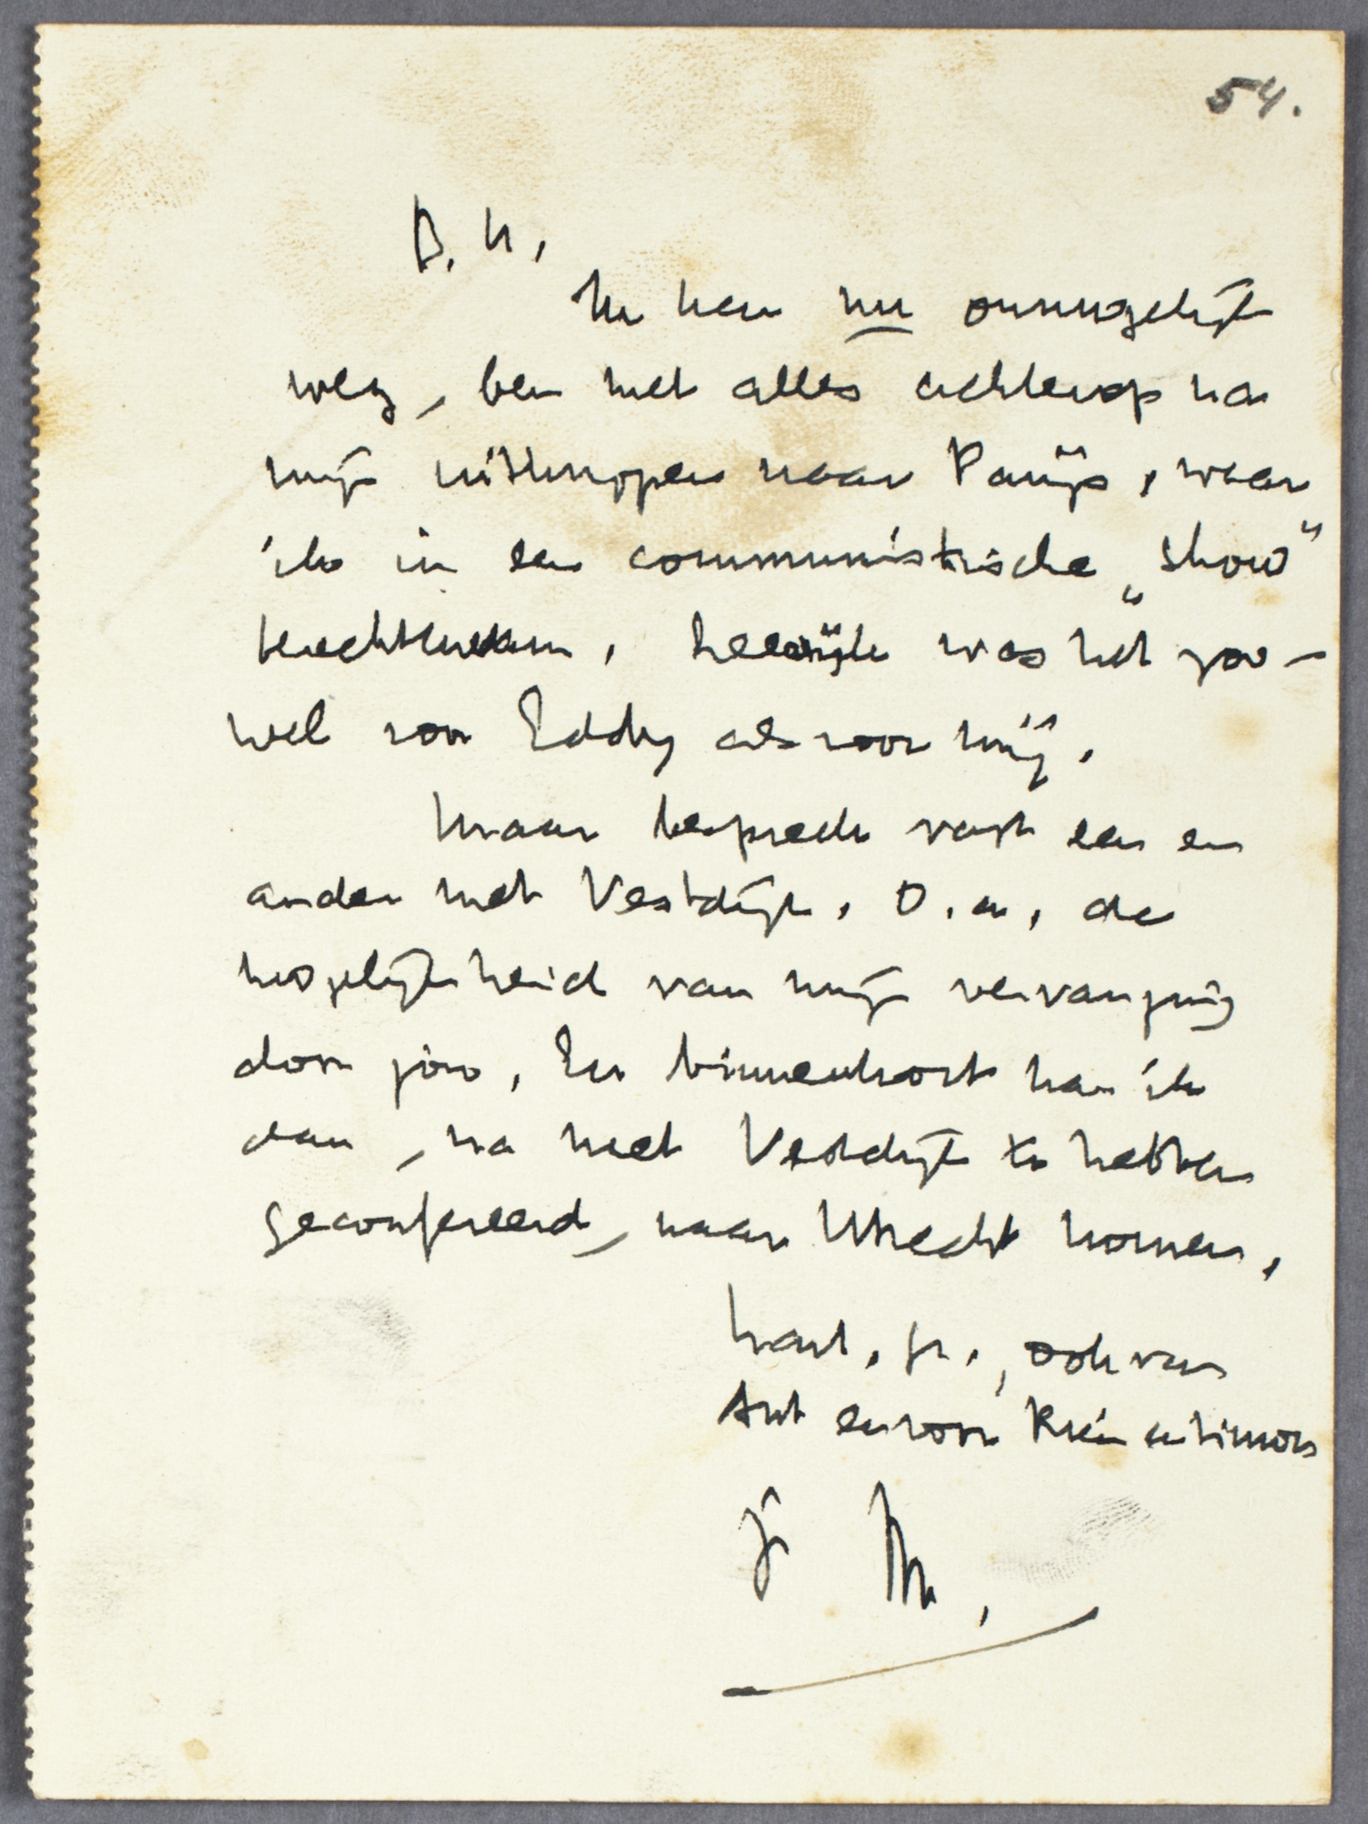 54.
D. H.,
Ik kan nu onmogelijk
weg, ben met alles achterop na
mijn uitknijpen naar Parijs, waar
ik in een communistische „show"
terechtkwam. Leerrijk was het zoo-
wel voor Eddy als voor mij.
Maar bespreek vast een en
ander met Vestdijk. O.a. de
mogelijkheid van mijn vervanging
door jou. En binnenkort kan ik
dan, na met Vestdijk te hebben
geconfereerd, naar Utrecht komen.
Hart. gr., ook van
Ant en voor Rien
je M.